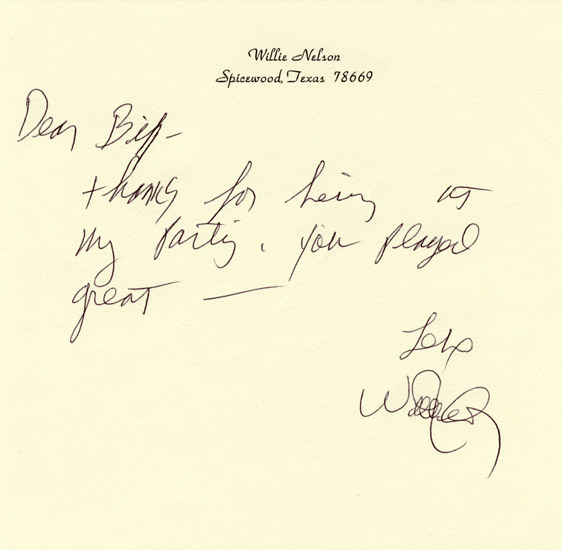 Willie Nelson
Spicewood, Texas 78669
Dear
thanks for being at
my party. You played
great —
Love
Willie